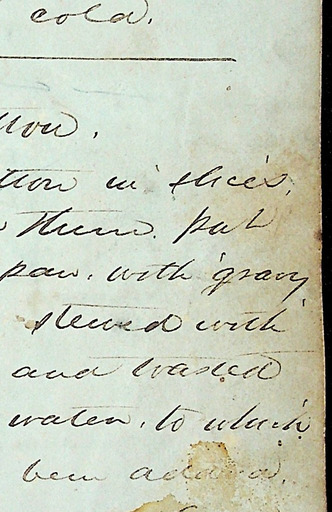 cold.
tton.
tton in slices,
them. put
pan. with gravy
stewed with
and wasted
water. to which
been added.